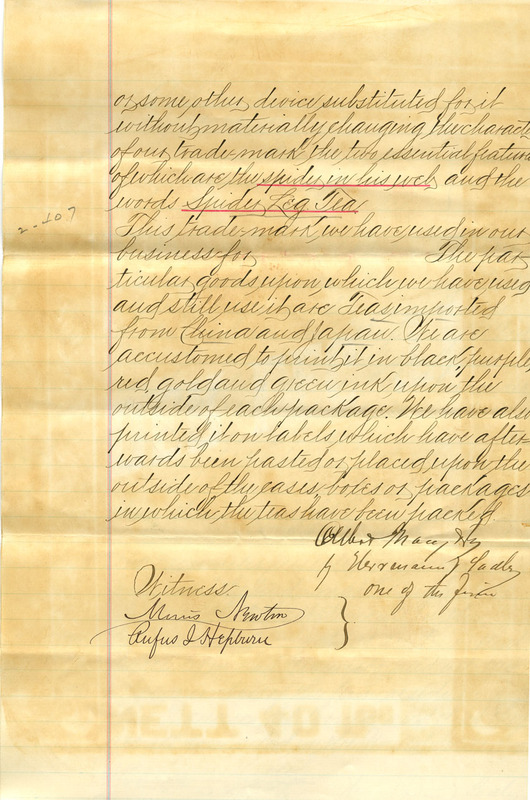 or some other device substituted for it
without materially changing the charact
of our trade-mark the two essential feature
of which are the spider in his web and the
words Spider Leg Tea.
This trade-mark we have used in our
business for The par
ticular goods upon which we have used
and still use it are Teas imported
from China and Japan. We are
accustomed to print it in black, purple,
red, gold and green ink upon the
outside of each package. We have also
printed it on labels which have after-
wards been pasted or placed upon the
outside of the cases, boxes or packages
in which the teas have been packed.
Albert Macy & Co
by Herrmann
one of the firm
Witness:
Morris Newton
Rufus J Hepburn
2-107
NETT 40 lbs